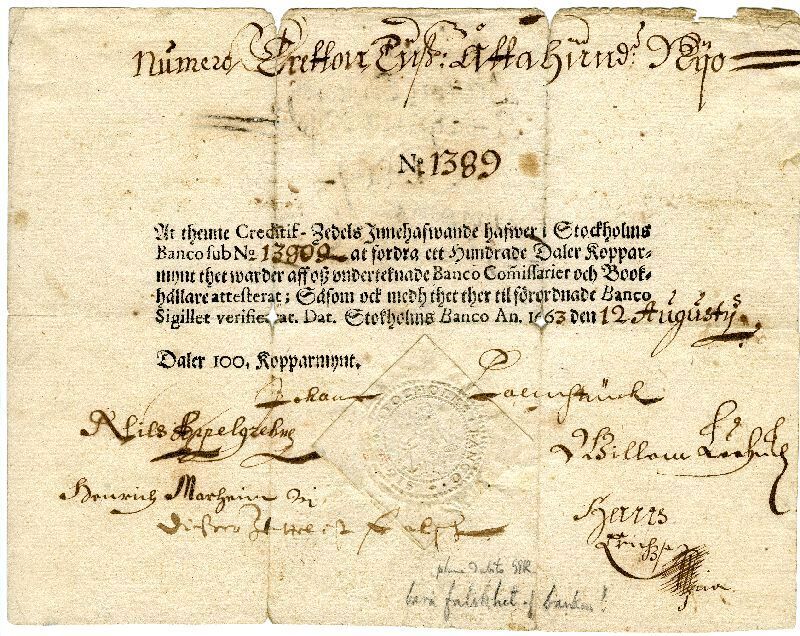 Numero Tretton Tus: Åtta hundr Nijo
No 1389
At thenne Creditif-Zedels Innehafwande hafwer i Stockholms
Banco sub No 13809 at fordra ett Hundrade Daler Koppar-
mynt thet warder aff oß underteknade Banco Commissarier och Book-
hållare attesterat; Såsom ock medh thet ther til förordnade Banco
Sigillet verificerat. Dat. Stokholms Banco An. 1663 den 12 Augustij
Daler 100, Kopparmynt.
Johan Palmstruck
Nils Appelgrehn
Willam
Henrich Marheim
Hans
bara falskhet af banken!